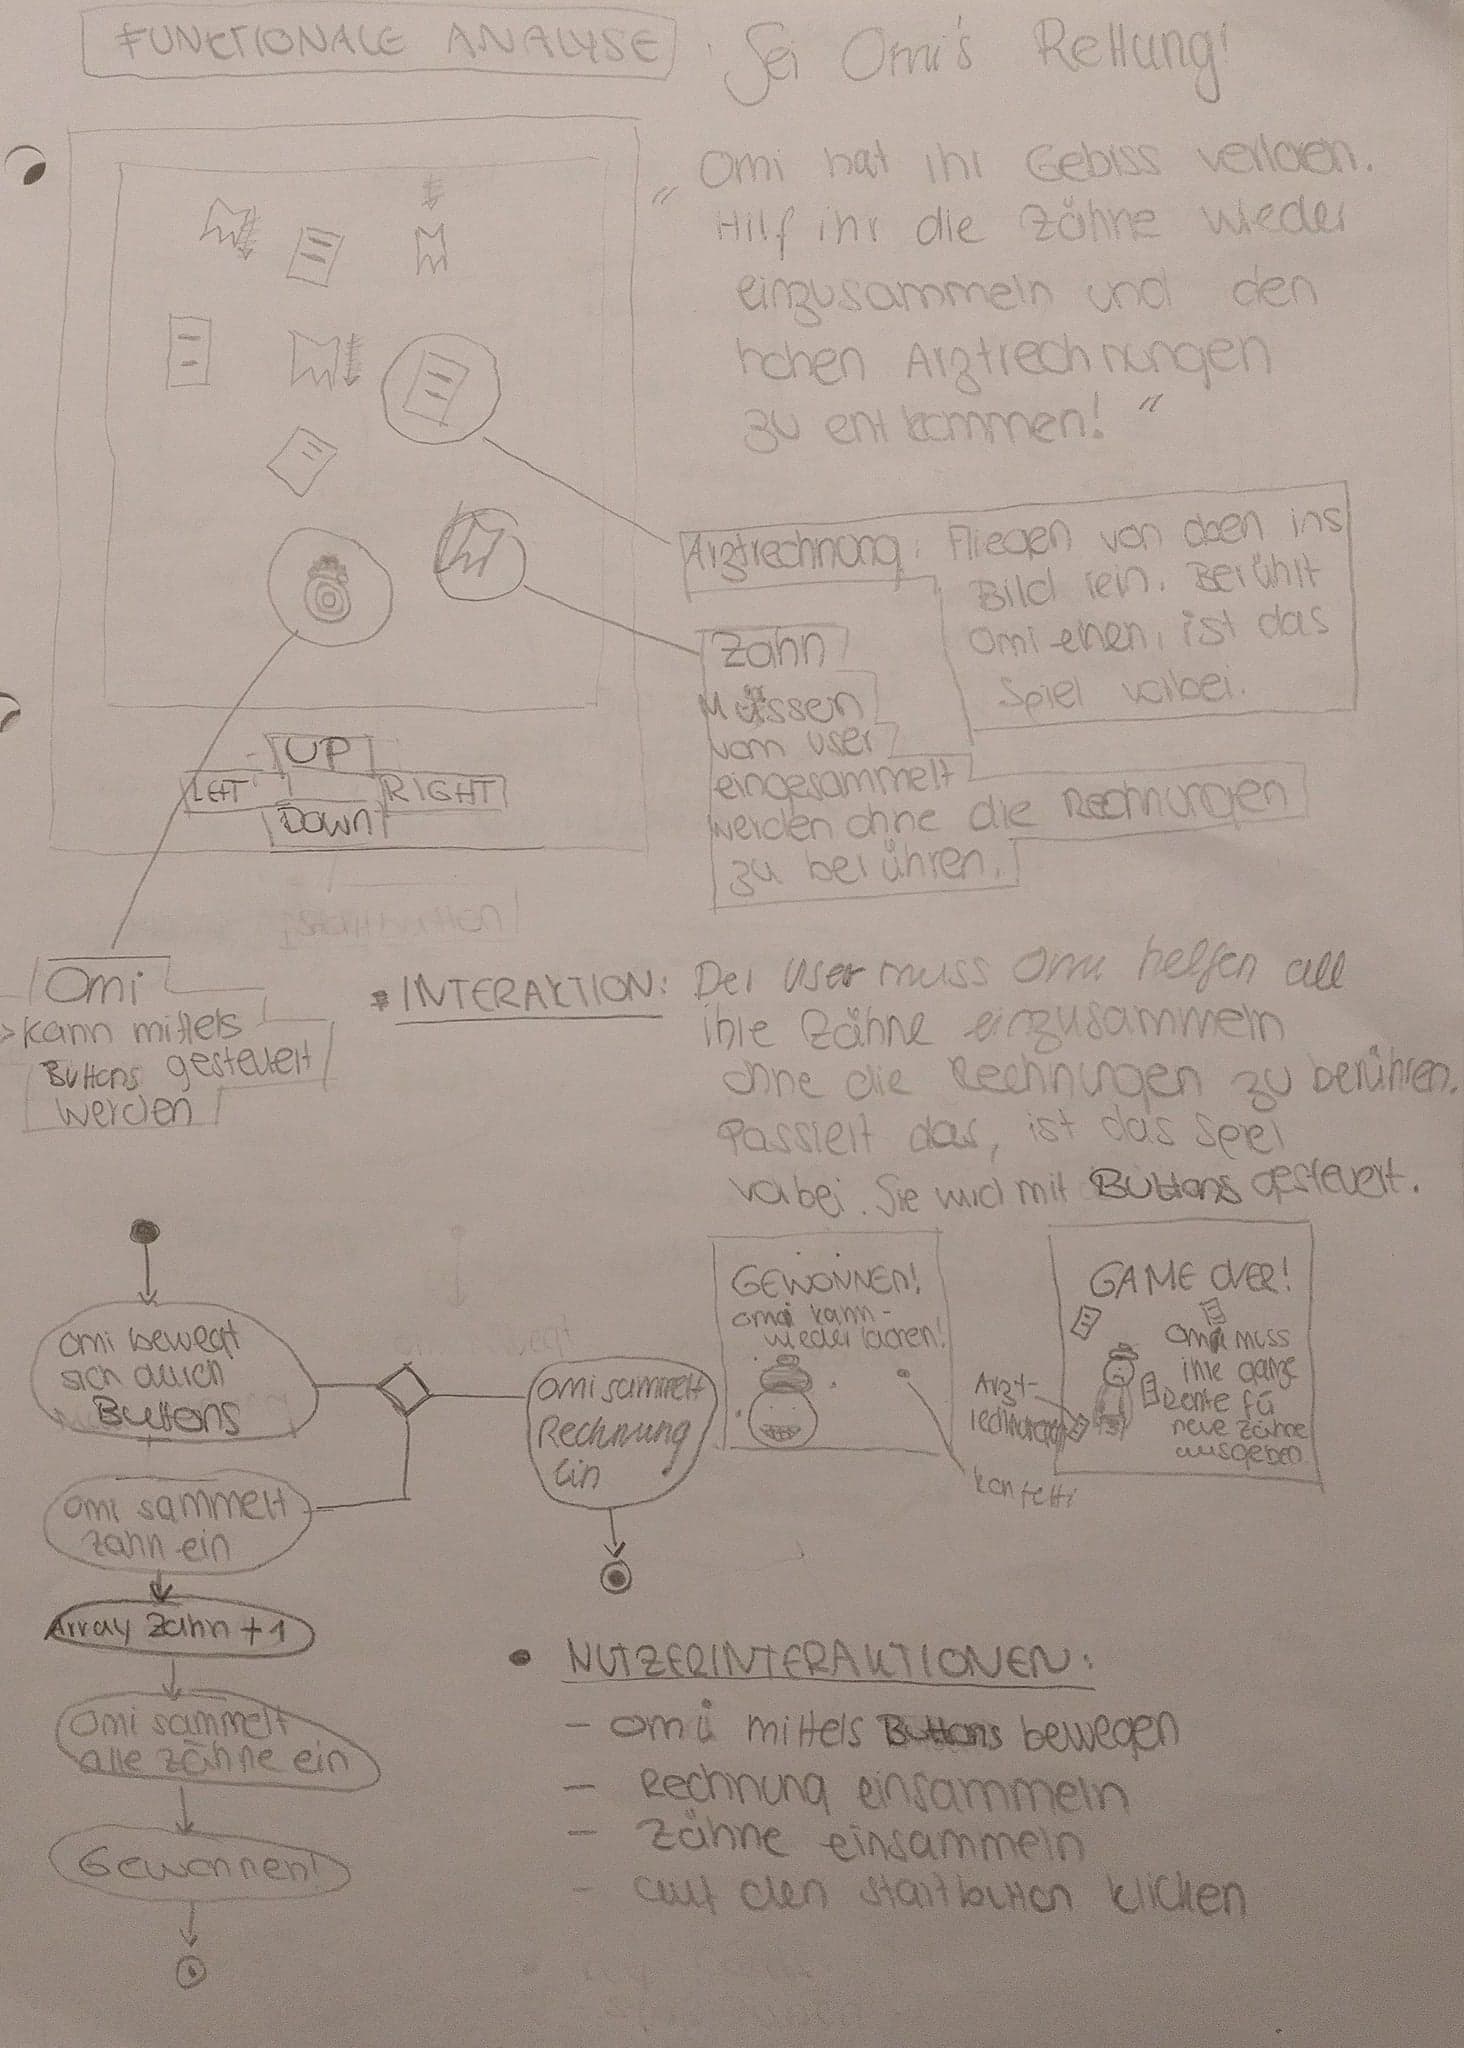 FUNKTIONALE ANALYSE
Sei Omi's Rettung!
"Omi hat ihr Gebiss verloren.
Hilf ihr die Zähne wieder
einzusammeln und den
hohen Arztrechnungen
zu entkommen!"
Arztrechnung: Fliegen von oben ins
Bild rein. Berührt
Omi einen, ist das
Spiel vorbei.
Zahn
Müssen
vom User
eingesammelt
werden ohne die Rechnungen
zu berühren.
UP
LEFT RIGHT
DOWN
Startbutton
Omi
> kann mittels
Buttons gesteuert
werden
INTERAKTION: Der User muss Omi helfen all
ihre Zähne einzusammeln
ohne die Rechnungen zu berühren.
Passiert das, ist das Spiel
vorbei. Sie wird mit Buttons gesteuert.
Omi bewegt
sich durch
Buttons
Omi sammelt
Rechnung
ein
Omi sammelt
Zahn ein
Array Zahn +1
Omi sammelt
alle Zähne ein
Gewonnen!
GEWONNEN!
Omi kann
wieder
Konfetti
GAME OVER!
Omi muss
ihre ganze
Rente für
neue Zähne
ausgeben
Arzt-
rechnungen
• NUTZERINTERAKTIONEN:
- Omi mittels Buttons bewegen
- Rechnung einsammeln
- Zähne einsammeln
- auf den Startbutton klicken